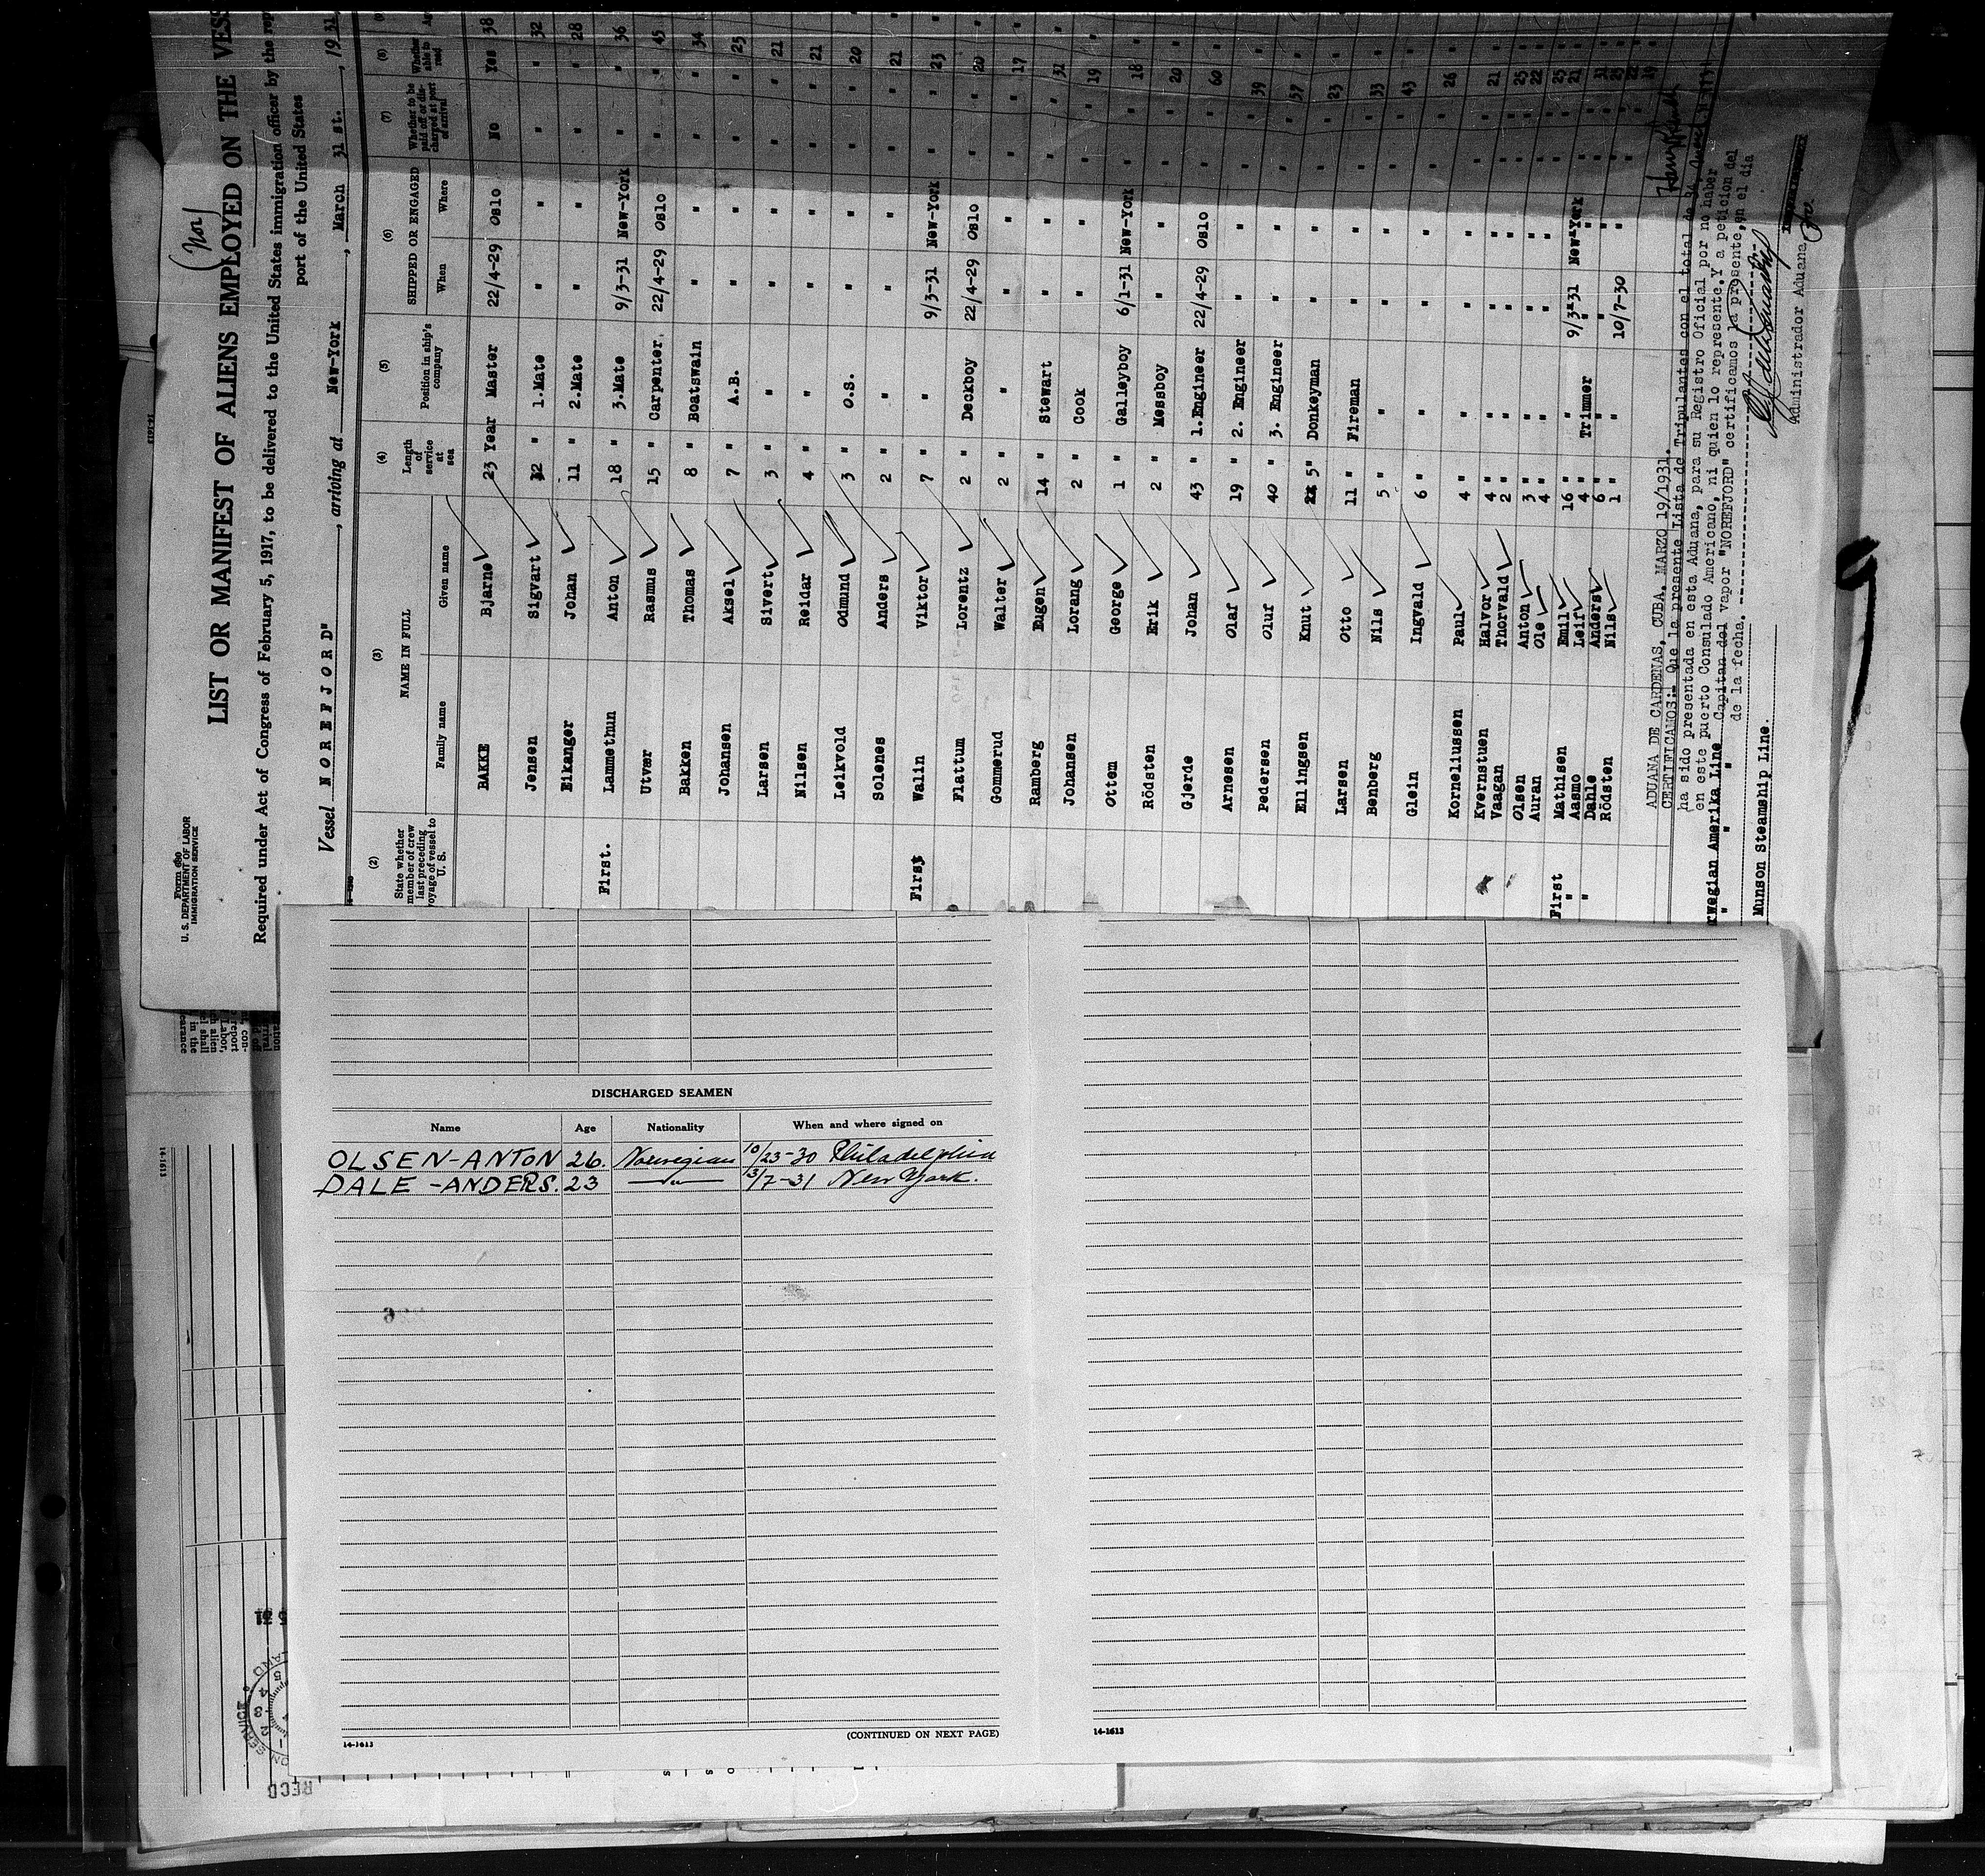 Form 680
U. S. DEPARTMENT OF LABOR
IMMIGRATION SERVICE
(Nor)
LIST OR MANIFEST OF ALIENS EMPLOYED ON THE VESS
Required under Act of Congress of February 5, 1917, to be delivered to the United States immigration officer by the rep
port of the United States
Vessel N O R E F J O R D", arriving at New-York, March 31 st., 19 31
(2) (3) (4) (5) (6) (7) (8)
State whether member of crew last preceding voyage of vessel to U. S. NAME IN FULL Family name Given name Length of service at sea Position in ship's company SHIPPED OR ENGAGED When Where Whether to be paid off or discharged at port of arrival Whether able to read
BAKKE Bjarne 23 Year Master 22/4-29 Oslo No Yes 38
Jensen Sigvart 12 " 1.Mate " " " " 32
Eikanger Johan 11 " 2.Mate " " " " 28
First. Lammethun Anton 18 " 3.Mate 9/3-31 New-York " " 36
Utvær Rasmus 15 " Carpenter. 22/4-29 Oslo " " 45
Bakken Thomas 8 " Boatswain " " " " 34
Johansen Aksel 7 " A.B. " " " " 25
Larsen Sivert 3 " " " " " " 21
Nilsen Reidar 4 " " " " " " 21
Leikvold Odmund 3 " O.S. " " " " 20
Solenes Anders 2 " " " " " " 21
First Walin Viktor 7 " " 9/3-31 New-York " " 23
Flattum Lorentz 2 " Deckboy 22/4-29 Oslo " " 20
Gommerud Walter 2 " " " " " " 17
Ramberg Eugen 14 " Stewart " " " " 31
Johansen Lorang 2 " Cook " " " " 19
Ottem George 1 " Galleyboy 6/1-31 New-York " " 18
Rödsten Erik 2 " Messboy " " " " 20
Gjerde Johan 43 " 1.Engineer 22/4-29 Oslo " " 60
Arnesen Olaf 19 " 2. Engineer " " " " 39
Pedersen Oluf 40 " 3. Engineer " " " " 57
Ellingsen Knut 5" Donkeyman " " " " 23
Larsen Otto 11 " Fireman " " " " 33
Benberg Nils 5 " " " " " " 43
Glein Ingvald 6 " " " " " " 26
Korneliussen Paul 4 " " " " " "
Kvernstuen Halvor 4 " " " " " " 21
Vaagan Thorvald 2 " " " " " " 25
Olsen Anton 3 " " " " " " 22
Auran Ole 4 " " " " " " 25
First Mathisen Emil 16 " " 9/3-31 New-York " " 21
" Aasmo Leif 4 " Trimmer " " " " 31
" Dahle Anders 6 " " " " " " 23
Rödsten Nils 1 " " 10/7-30 " " " 22
ADUANA DE CARDENAS, CUBA. MARZO 19/1931.
CERTIFICAMOS:- Que la presente Lista de Tripulantes con el total de 34,
ha sido presentada en esta Aduana, para su Registro Oficial por no haber
en este puerto Consulado Americano, ni quien lo represente.Y a peticion del
Capitan del vapor "NOREFJORD" certificamos la presente, en el dia
de la fecha.
rwegian Amerika Line
Munson Steamship Line.
Administrador Aduana
DISCHARGED SEAMEN
Name Age Nationality When and where signed on
OLSEN-ANTON 26. Norwegian 10/23-30 Philadelphia
DALE -ANDERS. 23 —"— 13/7-31 New York.
14-1613
(CONTINUED ON NEXT PAGE)
14-1613
RECD